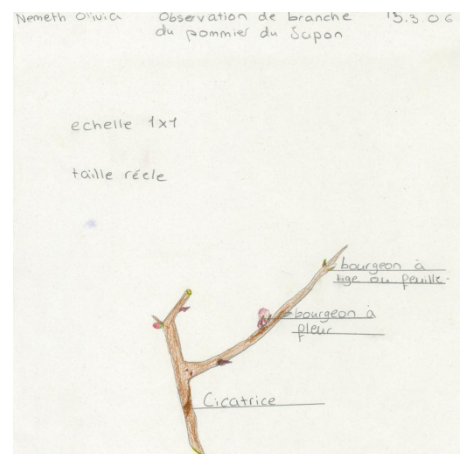 Nemeth Olivia Observation de branche 13.3.06
du pommier du Japon
echelle 1x1
taille réele
bourgeon à
tige ou feuille.
bourgeon à
fleur
Cicatrice